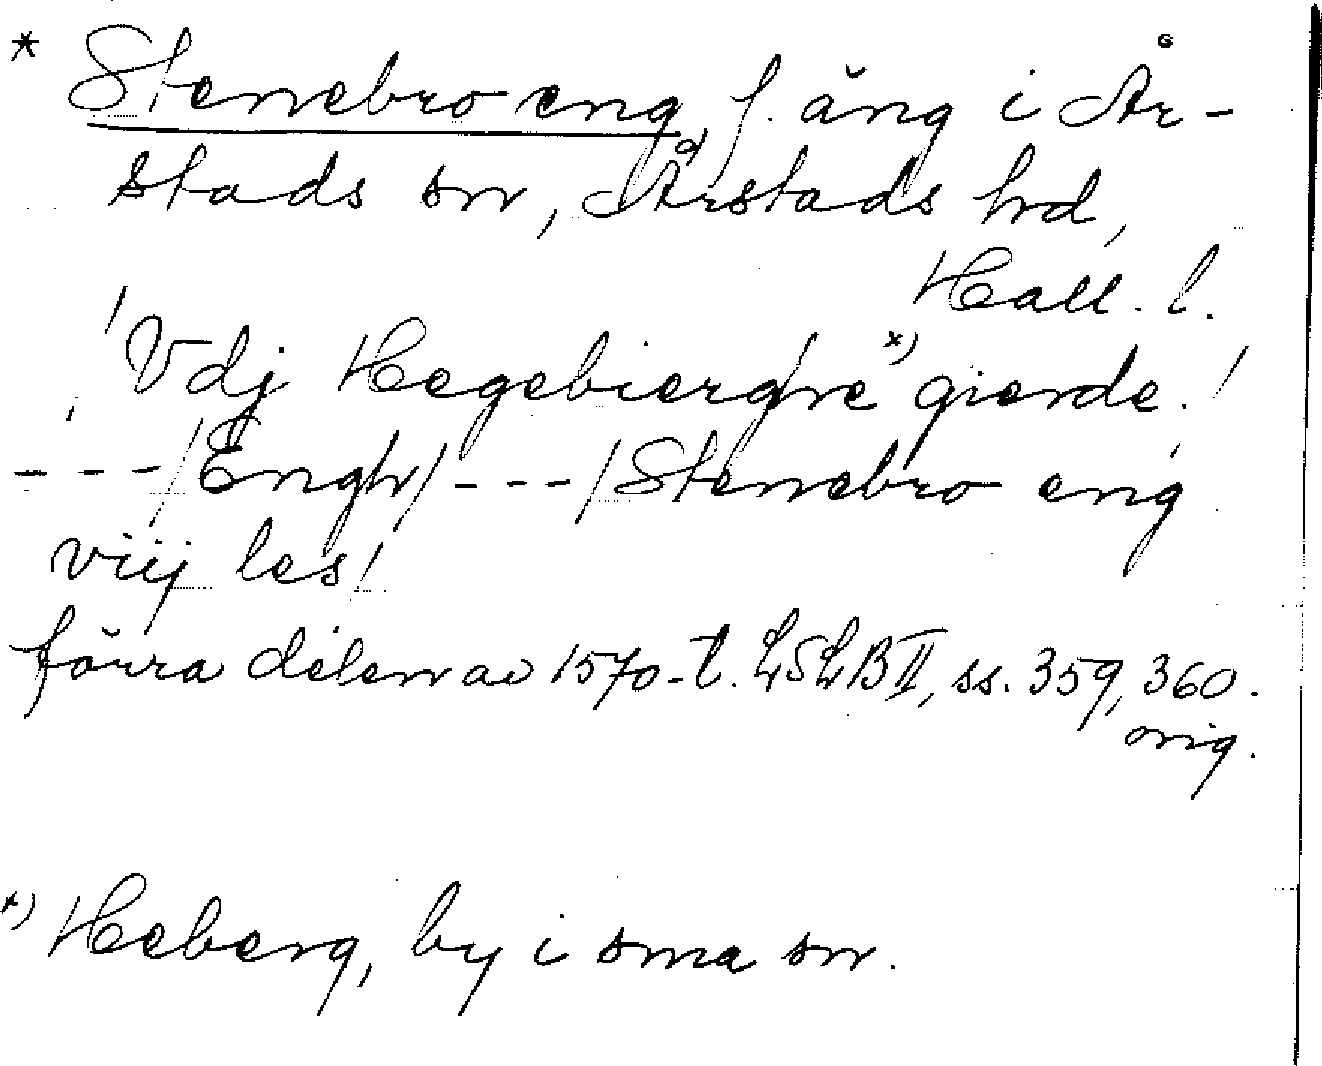 * Stenebro eng, f. äng i År-
stads sn, Årstads hd,
Hall. l.
/Vdj Hegebierghe *) gierde./
---/Engh/---/Stenebro eng
viij les/
förra delen av 1570-t. LSLB II, ss. 359, 360.
orig.
*) Heberg, by i sma sn.